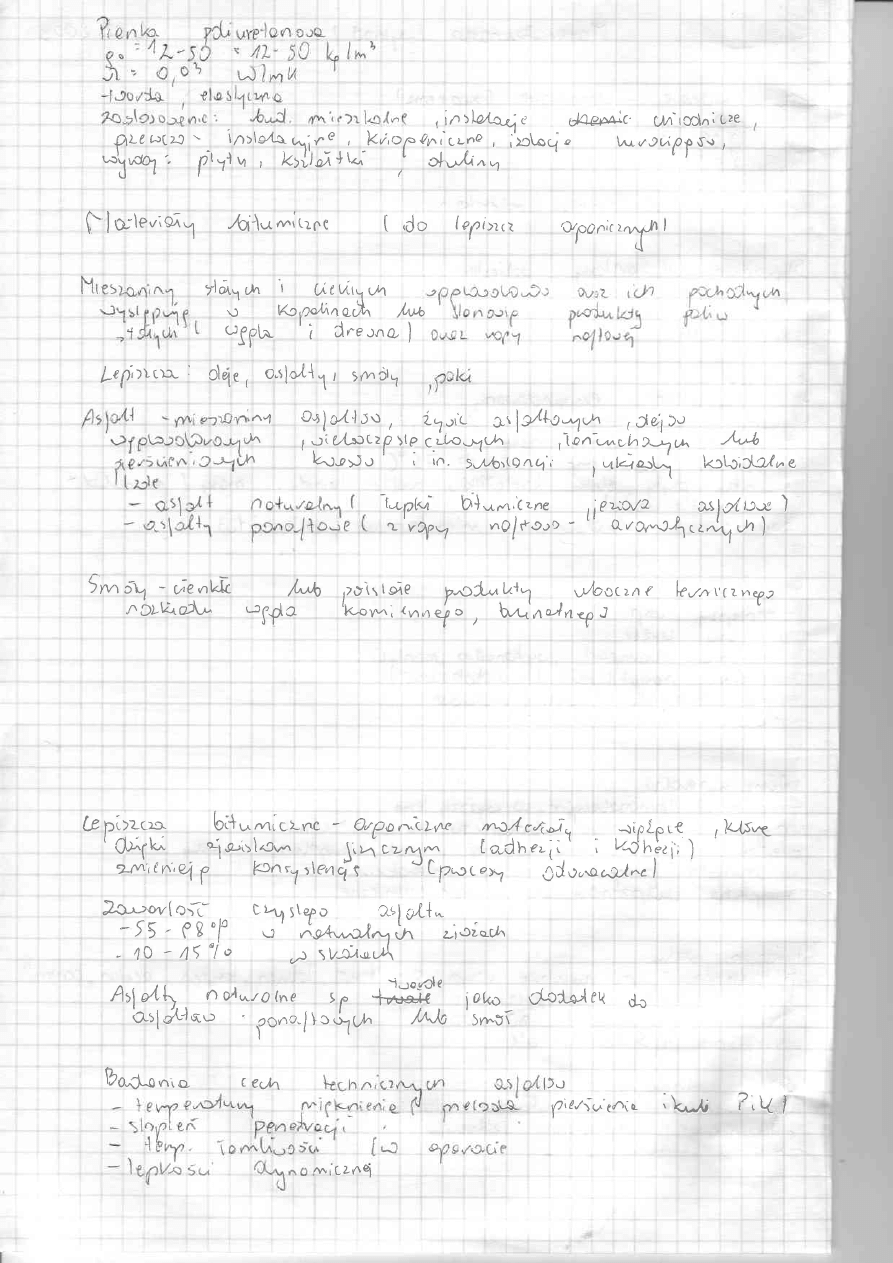 Pianka poliuretanowa
ρo = 12-50 = 12-50 kg/m³
λ = 0,03 W/mK
- twarda, elastyczna
zastosowanie: bud. mieszkalne, instalacje chłodnicze,
grzewczo - instalacyjne, kriogeniczne, izolacje rurociągów,
wyroby: płyty, kształtki, otuliny
Materiały bitumiczne (do lepiszcz organicznych)
Mieszaniny stałych i ciekłych węglowodorów oraz ich pochodnych
występują w kopalinach lub stanowią produkty paliw
stałych (węgla i drewna) oraz ropy naftowej
Lepiszcza: oleje, asfalty, smoły, paki
Asfalt - mieszaniny asfaltów, żywic asfaltowych, olejów
węglowodorowych, wielocząsteczkowych, łańcuchowych lub
pierścieniowych kwasów i in. substancji, układy koloidalne
- asfalt naturalny (łupki bitumiczne, jeziora asfaltowe)
- asfalty ponaftowe (z ropy naftowo - aromatycznych)
Smoły - ciekłe lub półstałe produkty uboczne termicznego
rozkładu węgla kamiennego, brunatnego
Lepiszcza bitumiczne - organiczne materiały wiążące, które
dzięki zjawiskom fizycznym (adhezji i kohezji)
zmieniają konsystencję (procesy odwracalne)
Zawartość czystego asfaltu
- 55 - 98% w naturalnych złożach
- 10 - 15% w skałach
Asfalty naturalne są twarde jako dodatek do
asfaltów ponaftowych lub smół
Badania cech technicznych asfaltów
- temperatury mięknienia metoda pierścienia i kuli PiK)
- stopień penetracji
- temp. łamliwości (w aparacie
- lepkości dynamicznej